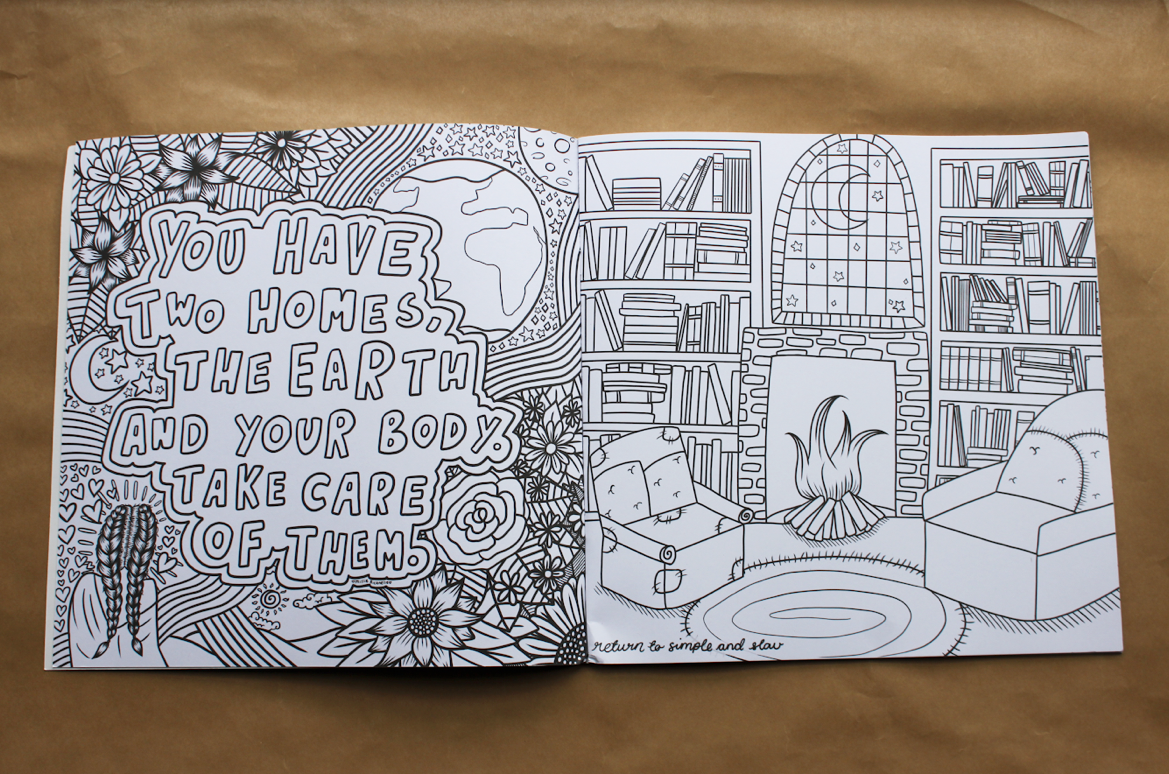 YOU HAVE
TWO HOMES,
THE EARTH
AND YOUR BODY.
TAKE CARE
OF THEM.
return to simple and slow